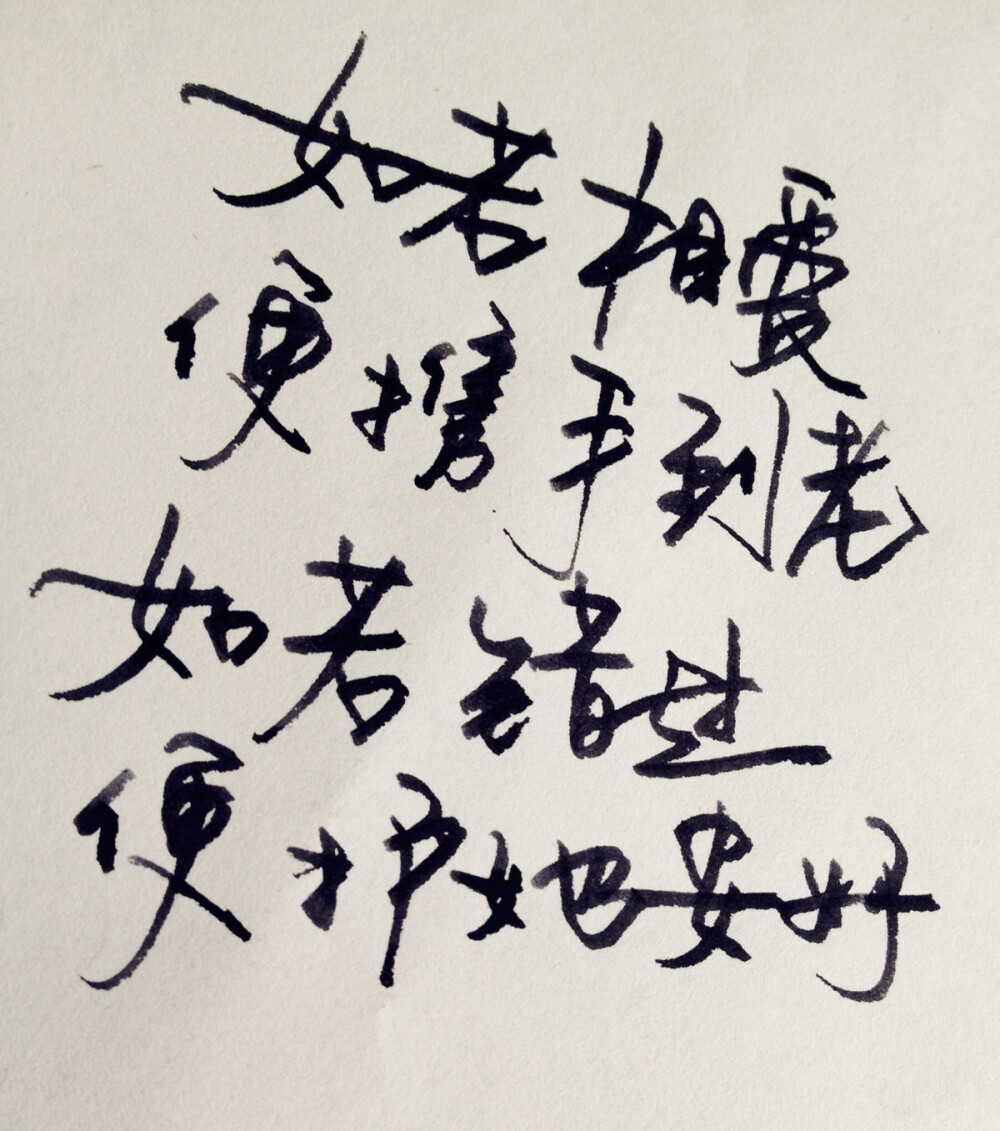 如若相爱
便携手到老
如若错过
便护她安好